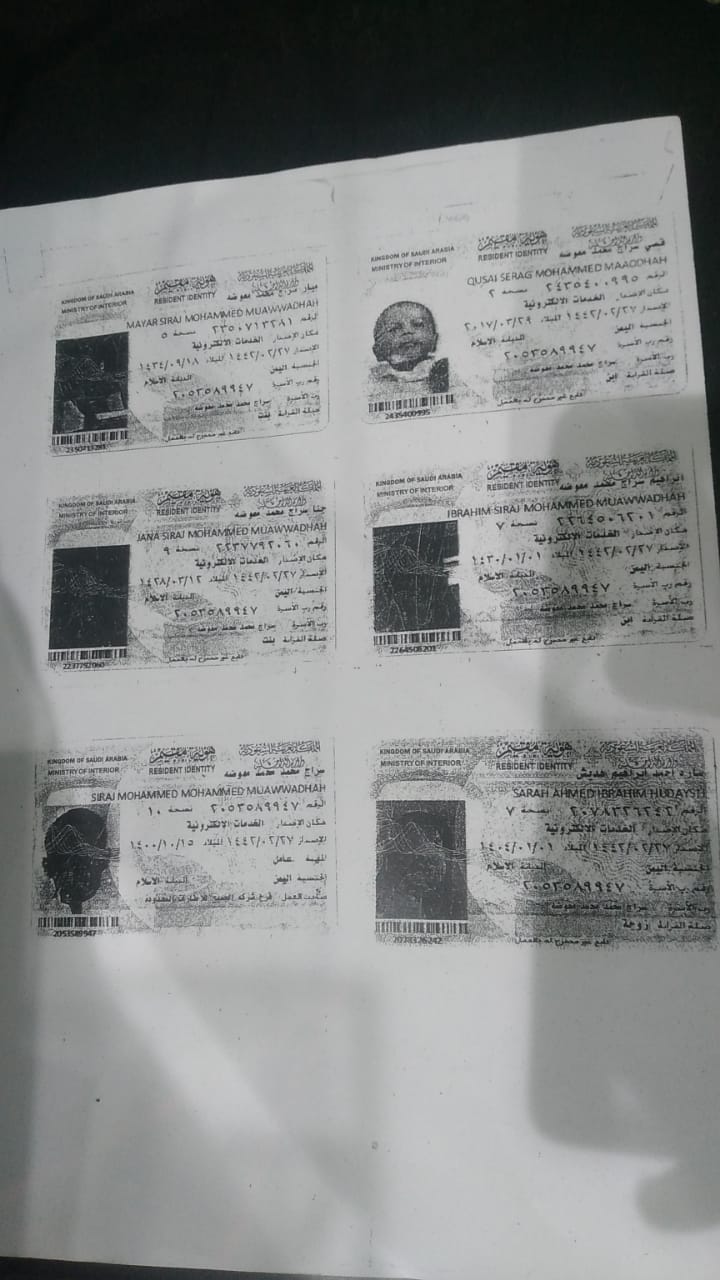 KINGDOM OF SAUDI ARABIA
MINISTRY OF INTERIOR
هوية مقيم
RESIDENT IDENTITY
ميار سراج محمد معوضه
MAYAR SIRAJ MOHAMMED MUAWWADHAH
الرقم ٢٣٥٠٧١٣٢٨١ نسخة ٥
مكان الإصدار الخدمات الالكترونية
الإصدار ١٤٤٢/٠٢/٢٧ الميلاد ١٤٣٤/٠٩/١٨
الجنسية اليمن
الديانة الاسلام
رقم رب الأسرة ٢٠٥٣٥٨٩٩٤٧
رب الأسرة سراج محمد محمد معوضه
صلة القرابة بنت
تابع غير مصرح له بالعمل
2350713281
KINGDOM OF SAUDI ARABIA
MINISTRY OF INTERIOR
هوية مقيم
RESIDENT IDENTITY
قصي سراج محمد معوضه
QUSAI SERAG MOHAMMED MAAODHAH
الرقم ٢٤٣٥٤٠٠٩٩٥ نسخة ٢
مكان الإصدار الخدمات الالكترونية
الإصدار ١٤٤٢/٠٢/٢٧ الميلاد ٢٠١٧/٠٣/٢٩
الجنسية اليمن
رقم رب الأسرة ٢٠٥٣٥٨٩٩٤٧
رب الأسرة سراج محمد محمد معوضه
صلة القرابة ابن
تابع غير مصرح له بالعمل
2435400995
KINGDOM OF SAUDI ARABIA
MINISTRY OF INTERIOR
هوية مقيم
RESIDENT IDENTITY
جنا سراج محمد معوضه
JANA SIRAJ MOHAMMED MUAWWADHAH
الرقم ٢٢٣٧٧٩٢٠٦٠ نسخة ٩
مكان الإصدار الخدمات الالكترونية
الإصدار ١٤٤٢/٠٢/٢٧ الميلاد ١٤٢٨/٠٣/١٢
الجنسية اليمن
الديانة الاسلام
رقم رب الأسرة ٢٠٥٣٥٨٩٩٤٧
رب الأسرة سراج محمد محمد معوضه
صلة القرابة بنت
تابع غير مصرح له بالعمل
2237792060
KINGDOM OF SAUDI ARABIA
MINISTRY OF INTERIOR
هوية مقيم
RESIDENT IDENTITY
ابراهيم سراج محمد معوضه
IBRAHIM SIRAJ MOHAMMED MUAWWADHAH
الرقم ٢٢٦٤٥٠٦٢٠١ نسخة ٧
مكان الإصدار الخدمات الالكترونية
الإصدار ١٤٤٢/٠٢/٢٧ الميلاد ١٤٣٠/٠١/٠١
الجنسية اليمن
الديانة الاسلام
رقم رب الأسرة ٢٠٥٣٥٨٩٩٤٧
رب الأسرة سراج محمد محمد معوضه
صلة القرابة ابن
تابع غير مصرح له بالعمل
2264506201
KINGDOM OF SAUDI ARABIA
MINISTRY OF INTERIOR
هوية مقيم
RESIDENT IDENTITY
سراج محمد محمد معوضه
SIRAJ MOHAMMED MOHAMMED MUAWWADHAH
الرقم ٢٠٥٣٥٨٩٩٤٧ نسخة ١٠
مكان الإصدار الخدمات الالكترونية
الإصدار ١٤٤٢/٠٢/٢٧ الميلاد ١٤٠٠/١٠/١٥
المهنة عامل
الجنسية اليمن
الديانة الاسلام
صاحب العمل فرع شركه
2053589947
KINGDOM OF SAUDI ARABIA
MINISTRY OF INTERIOR
هوية مقيم
RESIDENT IDENTITY
ساره احمد ابراهيم هديش
SARAH AHMED IBRAHIM HUDAYSH
الرقم ٢٠٧٨٣٢٦٢٤٢ نسخة ٧
مكان الإصدار الخدمات الالكترونية
الإصدار ١٤٤٢/٠٢/٢٧ الميلاد ١٤٠٤/٠١/٠١
الجنسية اليمن
الديانة الاسلام
رقم رب الأسرة ٢٠٥٣٥٨٩٩٤٧
رب الأسرة سراج محمد محمد معوضه
صلة القرابة زوجة
تابع غير مصرح له بالعمل
2078326242